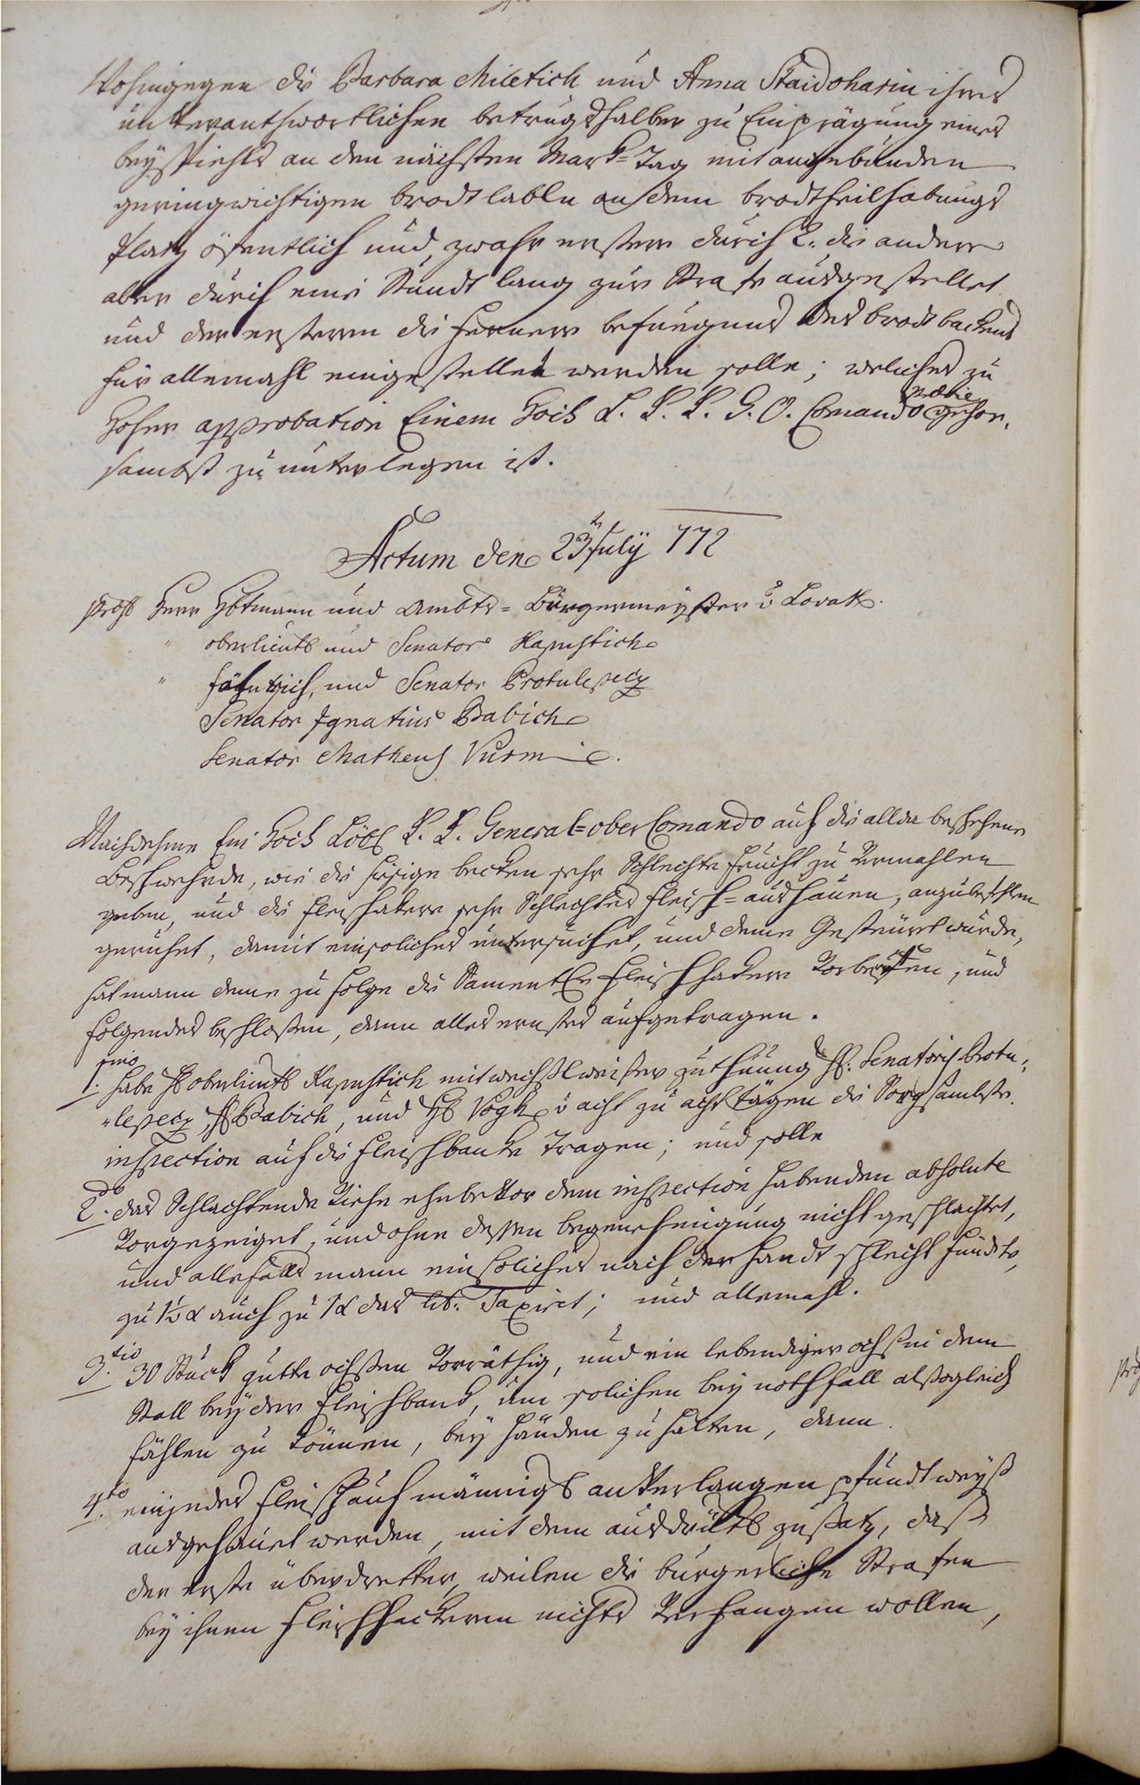 Wohingegen die Barbara Miletich und Anna Staidoharin ihres
unverantwortlichen betrugshalber zu Einprägung eines
beyspiehls an den nächsten Mark=Tag mit angebunden
geringwichtigen brodtlabln auf dem brodtheilhabungs
Platz öfentlich und zwahr erstere durch 2. die andere
aber durch eine Stundt lang zur Strafe ausgestellet
und der ersteren die fernere befuegnus des brodt backens
für allemahl eingestellet werden solle; welches zu
hoher approbation Einem hoch L. K. K. G. O. Comando gehor,
sambst zu unterlegen ist.
Actum den 23 July 772
Herr Hbtmann und Ambts= Bürgermeyster v Lovatt.
" oberlieuts und Senator Kapustich
" fähnrich, und Senator Protulepecz
Senator Ignatius Babich
Senator Matheus Vurm
Nachdeme Ein hoch Löbl K. K. General=ober Comando auf die allda beschehene
Beschwehrde, wie die hisige becken sehr Schlechte frucht zu Vermahlen
geben, und die fleischaker sehr Schlechtes fleisch=aushauen, anzubefehlen
geruhet, damit ein solches untersuchet, und deme Gesteuert wurde,
hat mann deme zu folge die Samentl fleischhaker Vorberuffen, und
folgendes beschlossen, dann alles ernstes aufgetragen.
1mo habe H oberlieuts Kapustich mit wechslweiser zuthuung H. Senatorn Protu,
"lepecz, H Babich, und H Vogh v acht zu acht tägen die Sorgsambste
inspection auf die fleischbank Tragen; und solle
2do das Schlachtende Viehe ehebevor dem inspection habenden absolute
Vorgezeiget, und ohne dessen begenehmigung nicht geschlachtet,
und allefalls mann ein solches nach der handt schlecht fundete,
zu 1½ x auch zu 1 x das lb. Taxiret; und allemahl.
3tio 30 Stuck gutte ochsen Vorräthig, und ein lebendiger ochs in dem
Stall bey der fleischbank, um solchen bey nothfall alsogleich
fählen zu können, bey handen zu halten, dann
4to ein jedes fleisch auf männigs anverlangen pfundtweyß
ausgehauet werden, mit dem ausdrükl zusatz, daß
der erste überdretter, weilen die burgerliche Strafen
bey ihnen fleischhackern nichts Verfangen wollen,